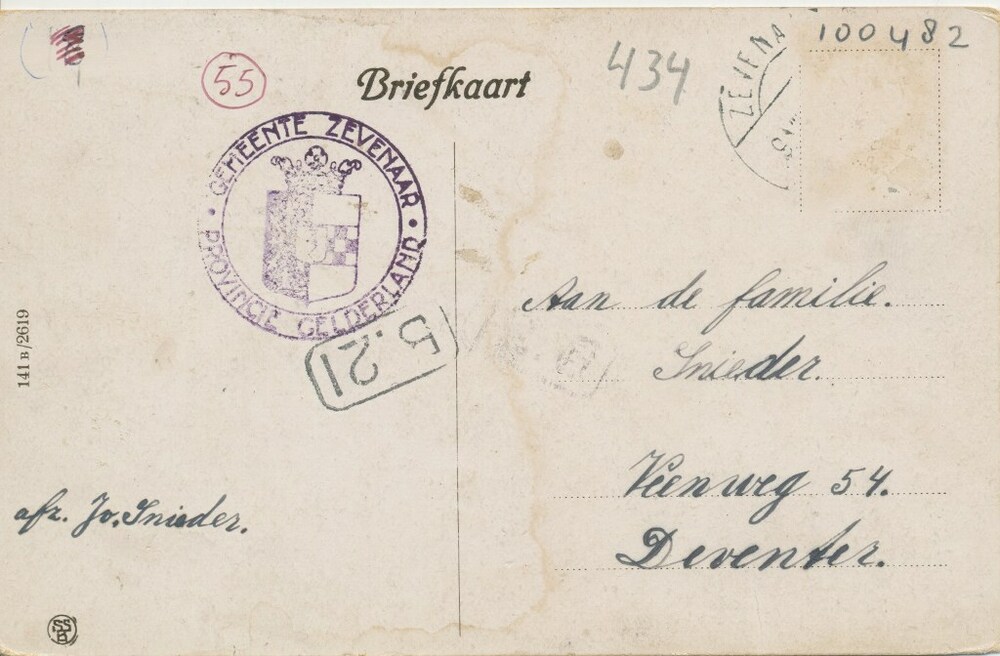 55
Briefkaart
434
100482
ZEVENA
GEMEENTE ZEVENAAR
PROVINCIE GELDERLAND
5.21
141 B/2619
Aan de familie.
Snieder.
Veenweg 54.
Deventer.
afz. Jo. Snieder.
SSB